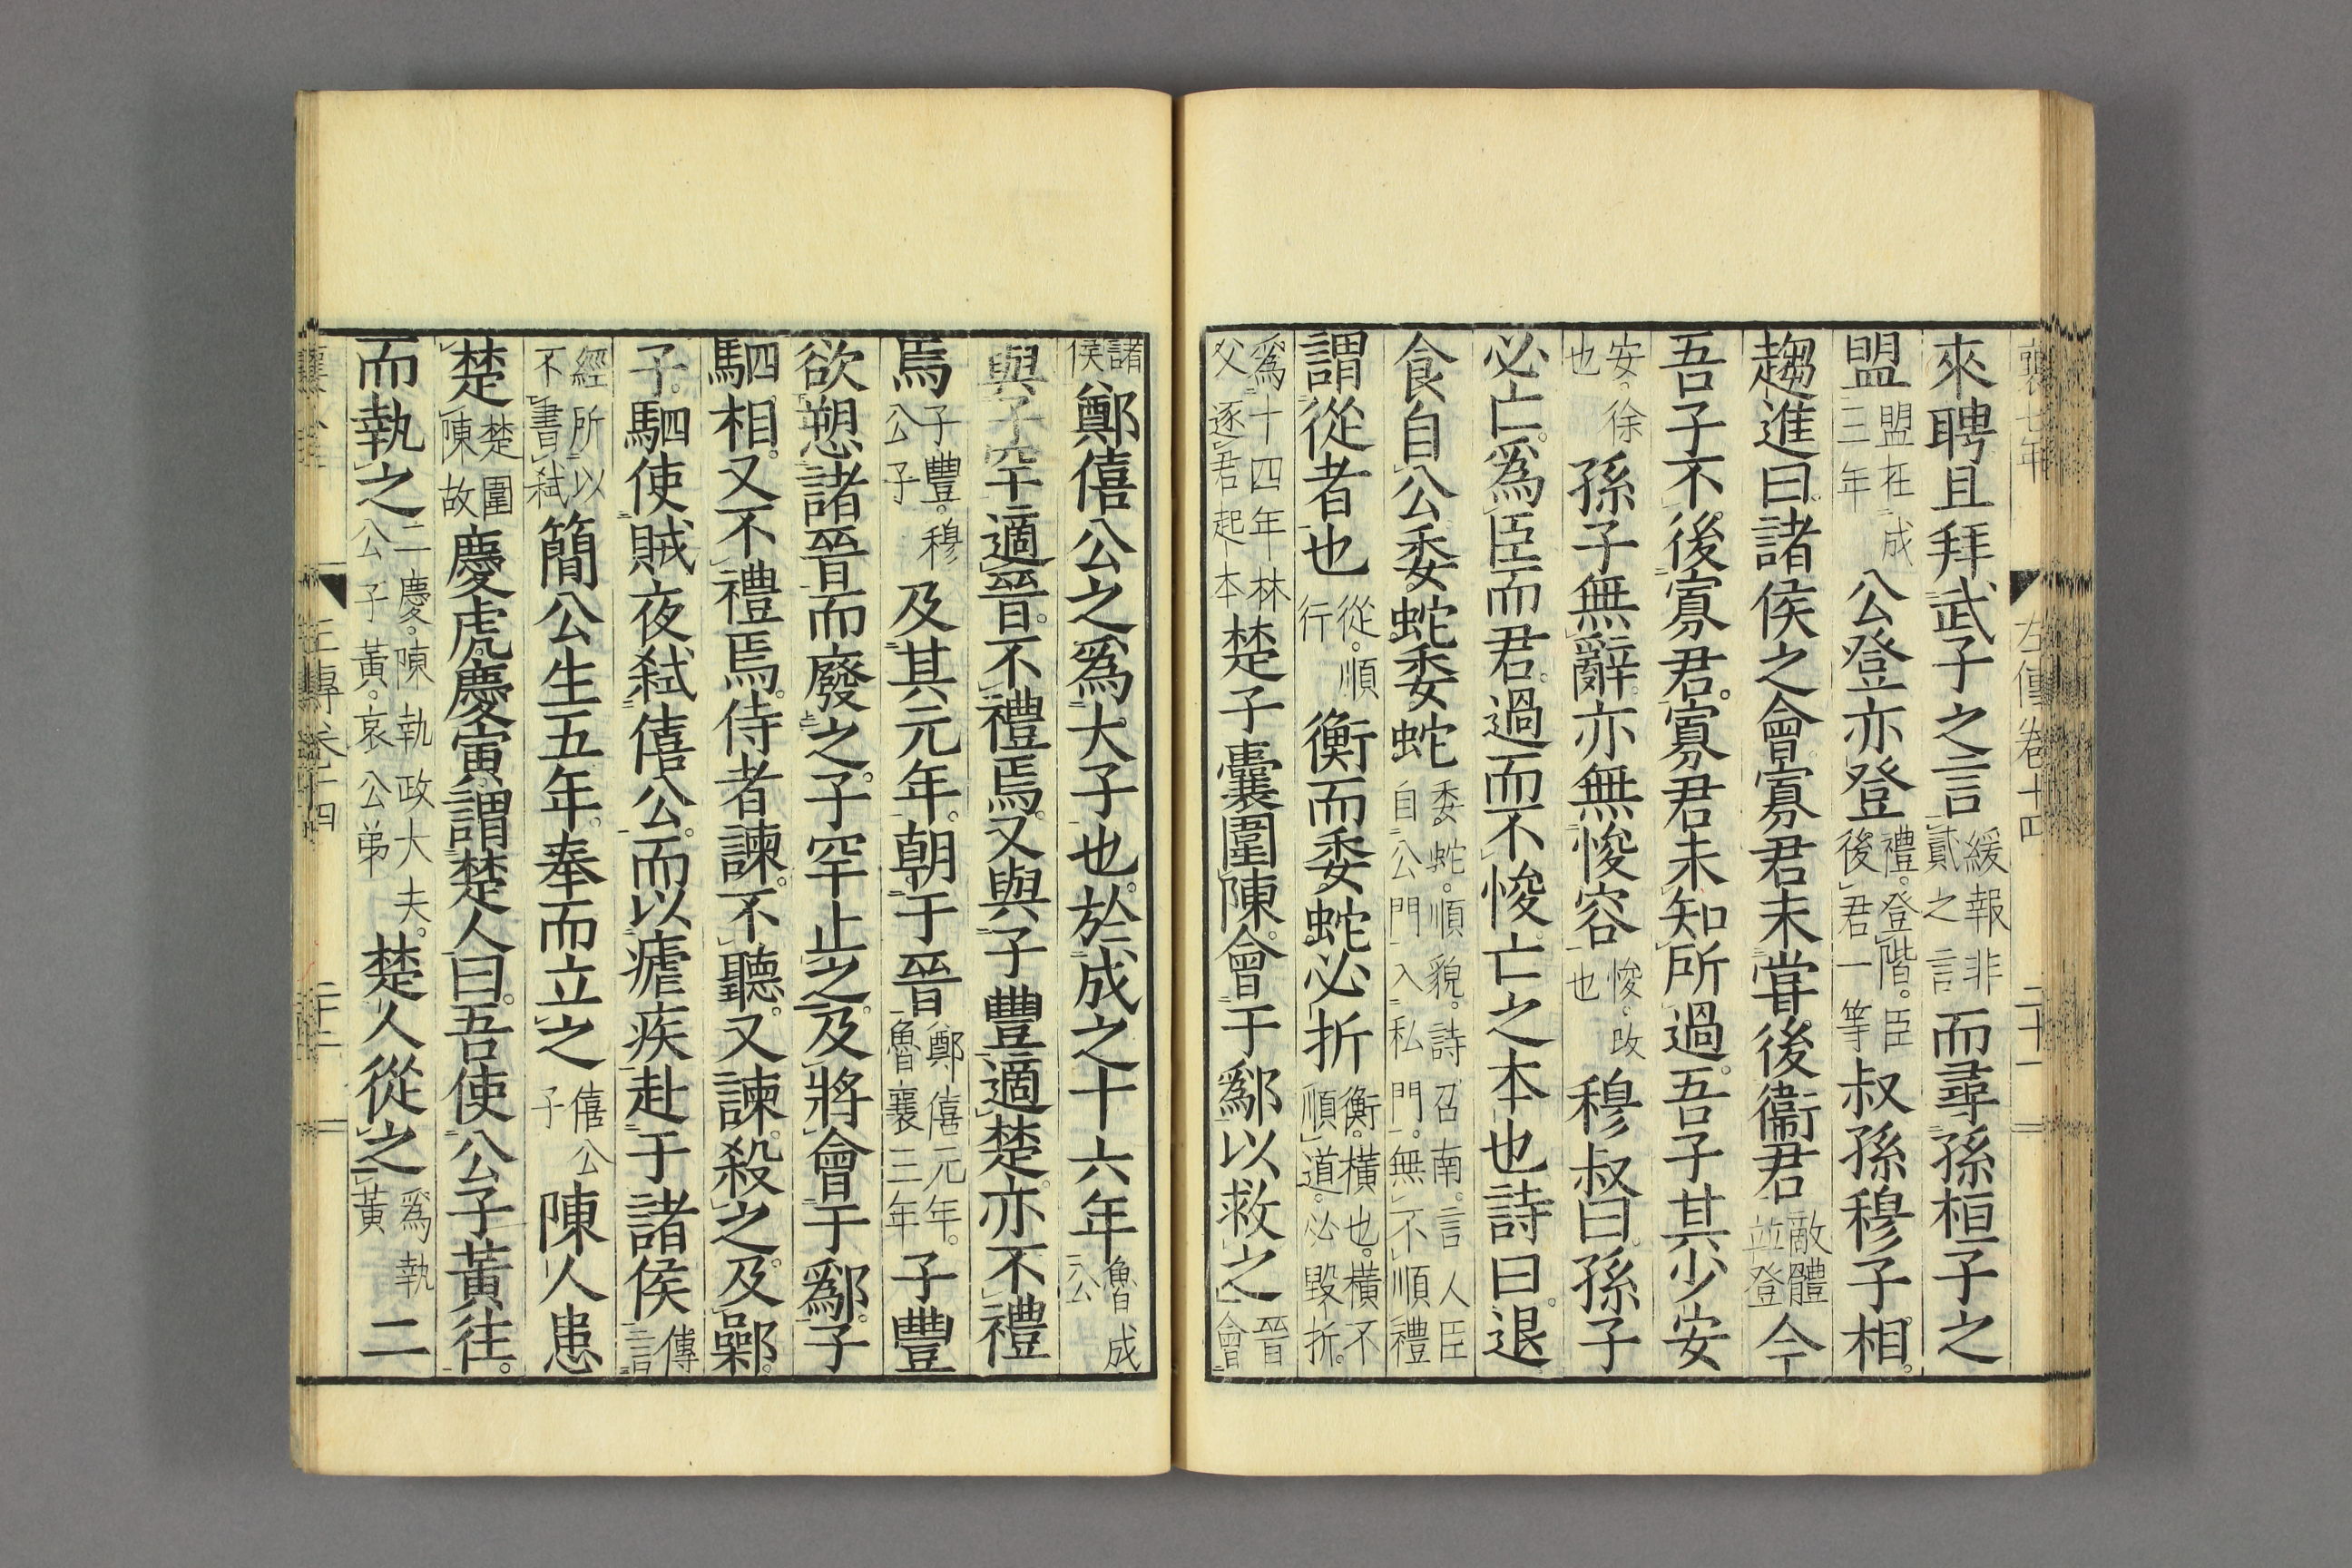 襄七年 左傳卷十四 二十一
來聘且拜武子之言緩報非貳之言而尋孫桓子之
盟盟在成三年公登亦登禮登階臣後君一等叔孫穆子相
趨進曰諸侯之會寡君未嘗後衞君敵體並登今
吾子不後寡君寡君未知所過吾子其少安
安徐也孫子無辭亦無悛容悛改也穆叔曰孫子
必亡爲臣而君過而不悛亡之本也詩曰退
食自公委蛇委蛇委蛇順貌詩召南言人臣自公門入私門無不順禮
謂從者也從順行衡而委蛇必折衡橫也橫不順道必毀折
爲十四年林父逐君起本楚子囊圍陳會于鄬以救之晉會
諸侯鄭僖公之爲大子也於成之十六年魯成公
與子罕適晉不禮焉又與子豐適楚亦不禮
焉子豐穆公子及其元年朝于晉鄭僖元年魯襄三年子豐
欲愬諸晉而廢之子罕止之及將會于鄬子
駟相又不禮焉侍者諫不聽又諫殺之及鄵
子駟使賊夜弑僖公而以瘧疾赴于諸侯傳言
經所以不書弑簡公生五年奉而立之僖公子陳人患
楚楚圍陳故慶虎慶寅謂楚人曰吾使公子黃往
而執之二慶陳執政大夫公子黃哀公弟楚人從之爲執黃二